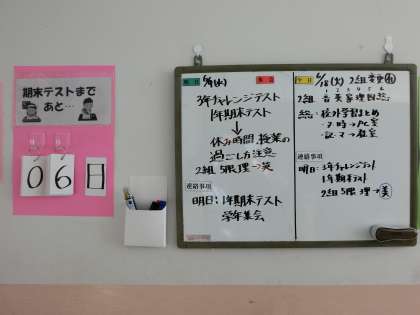 期末テストまで
あと…
06日
6/19(水)
3年チャレンジテスト
1年期末テスト
↓
休み時間、授業の
過ごし方注意
2組 5限 理→英
連絡事項
明日:1年期末テスト
学年集会
6/18(火)
1 2 3 4 5 6
2組 音英家理国総
総:校外学習まとめ
連絡事項
明日:3年チャレンジテスト
1年期末テスト
2組 5限 理→英